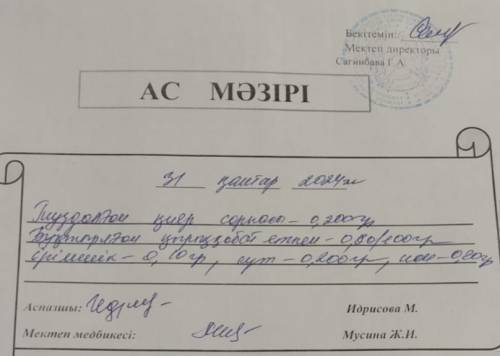 Бекітемін:
Мектеп директоры
Сагинбаева Г.А.
АС МӘЗІРІ
31 қаңтар 2024ж
Тұздалған қияр сорпасы – 0,200гр
етпен – 0,80/100гр
ірімшік – 0,10гр, сүт – 0,200гр, нан – 0,80гр
Аспазшы:
Идрисова М.
Мектеп медбикесі:
Мусина Ж.И.